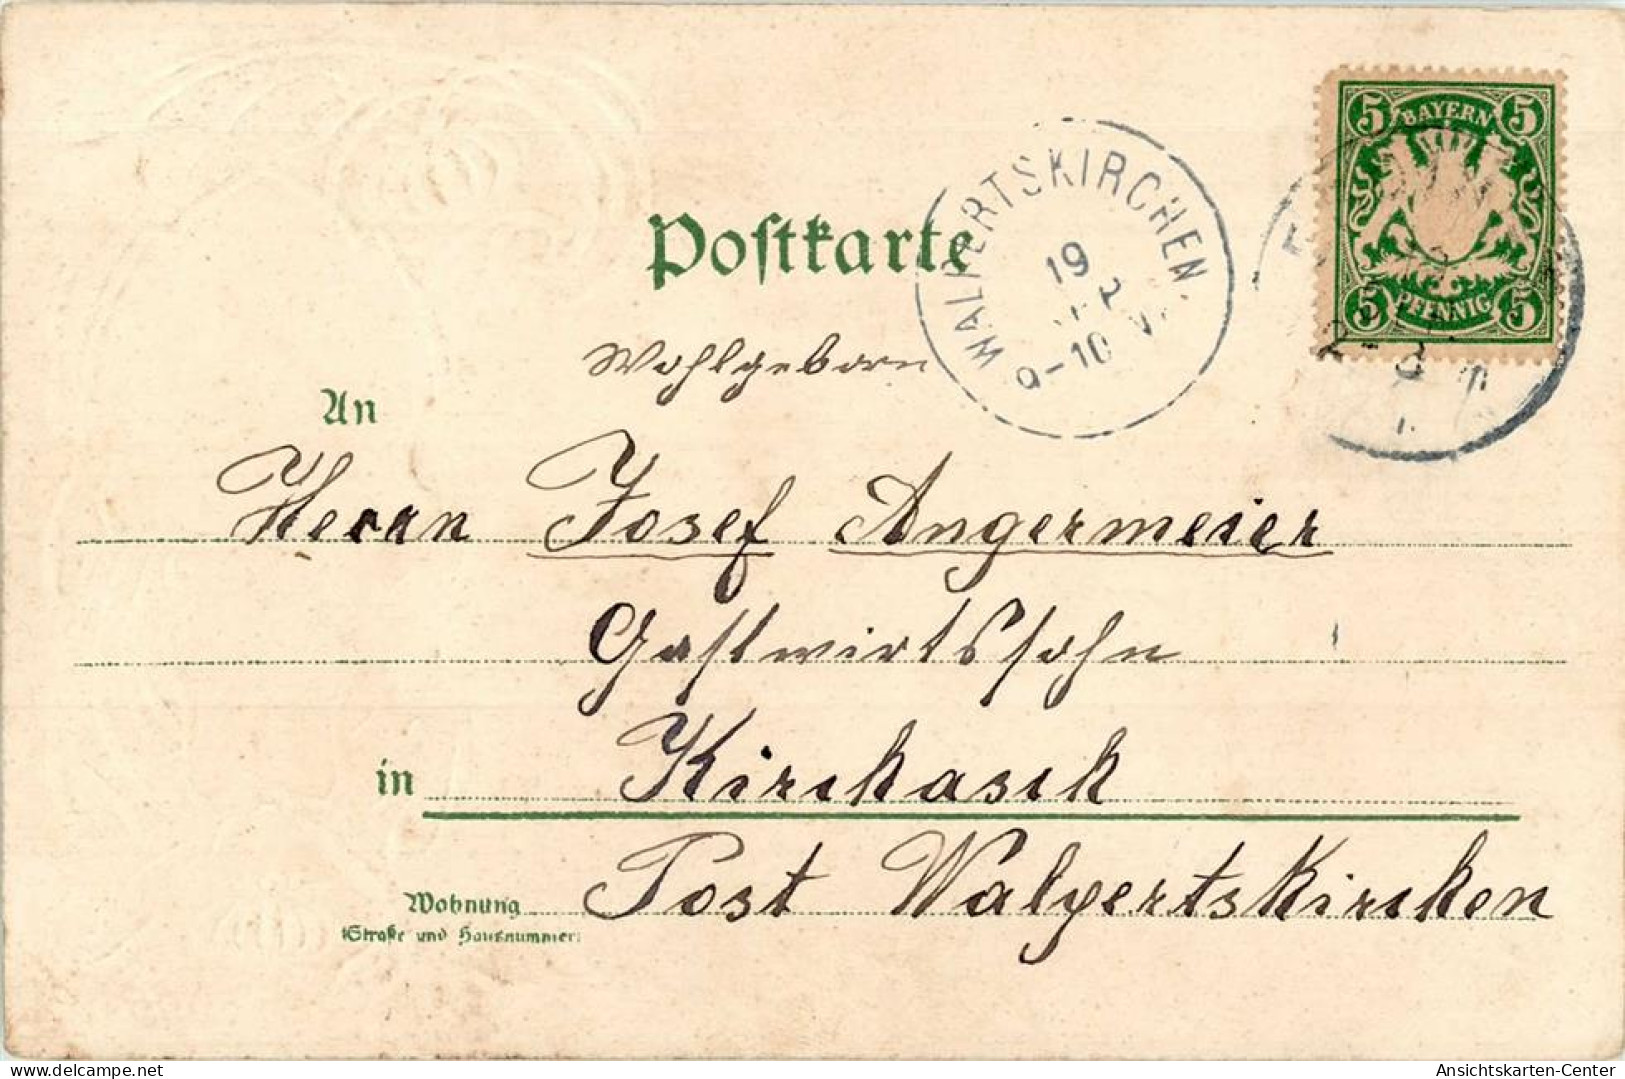 5 BAYERN 5
5 PFENNIG 5
WALPERTSKIRCHEN
19
9-10 V.
Postkarte
Wohlgeborn
An
Herrn Josef Angermeier
Gastwirtssohn
in Kirchasch
Post Walpertskirchen
Wohnung
(Straße und Hausnummer)
delcampe.net
Ansichtskarten-Center